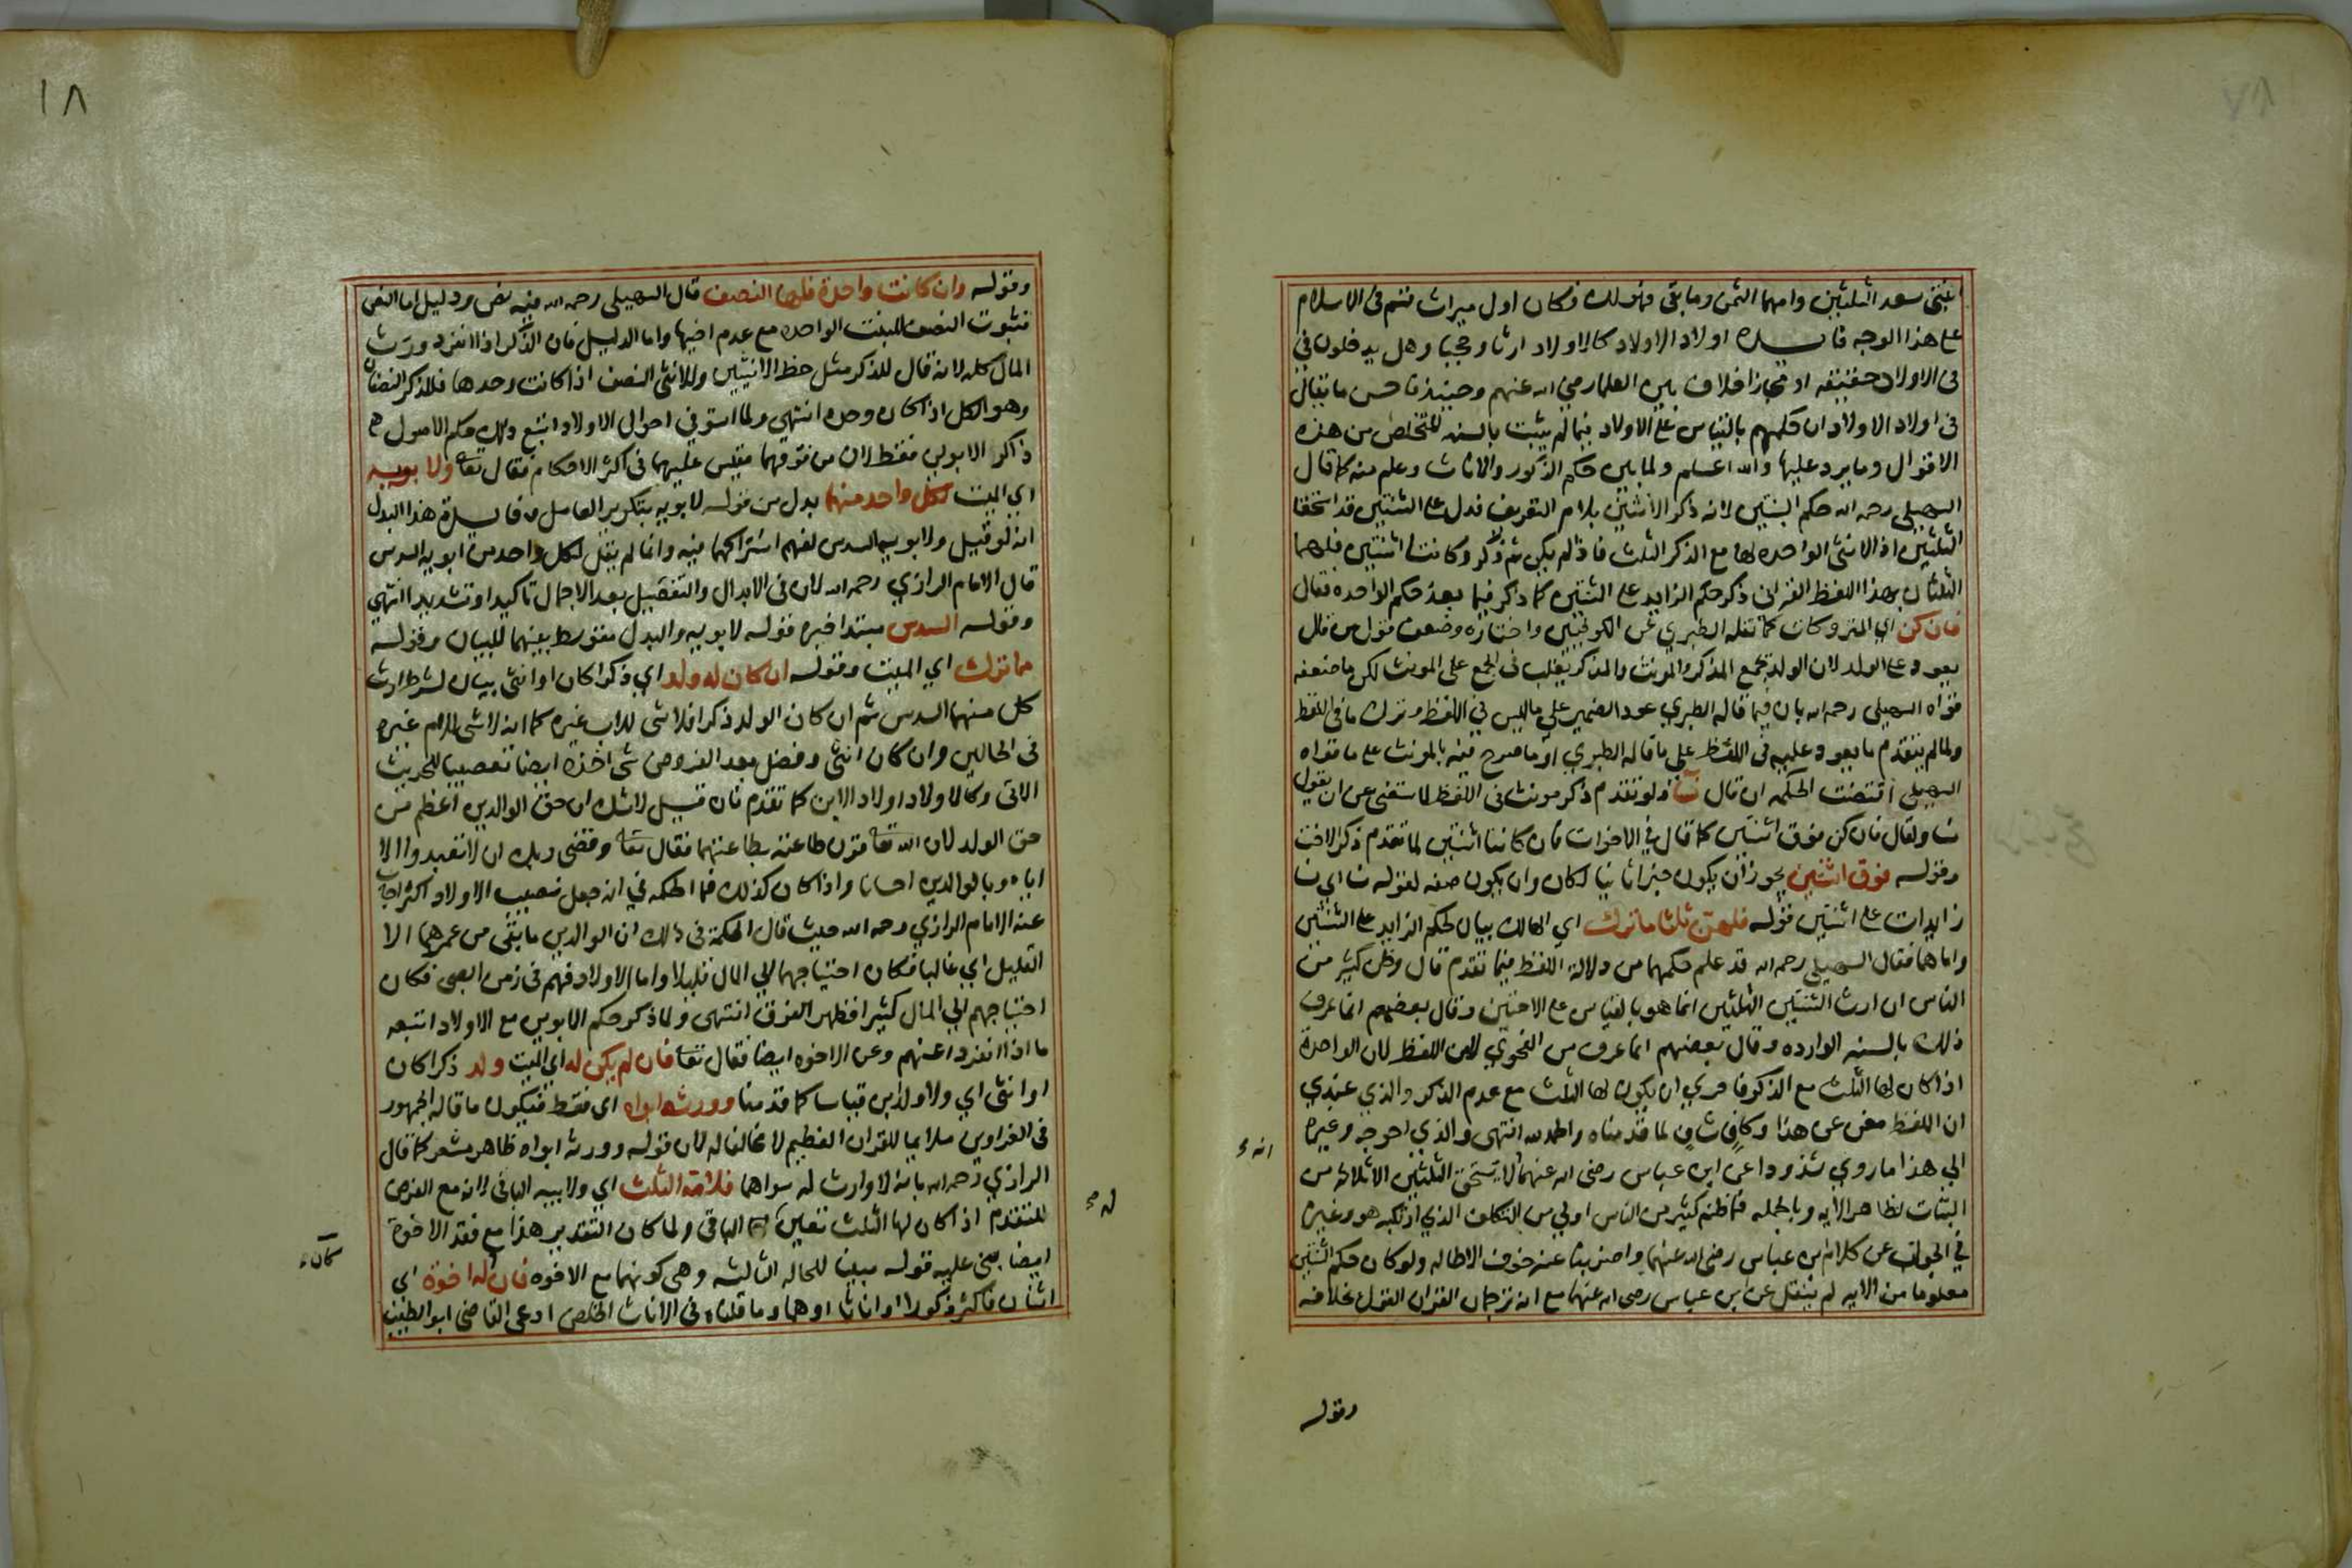 ابنتي سعد الثلثين وامهما الثمن وما بقي فهو لك فكان اول ميراث قسم في الاسلام
على هذا الوجه فايده اولاد الاولاد كالاولاد ارثا وحجبا وهل يدخلون في
في الاولاد حقيقه او مجازا خلاف بين العلما رضي الله عنهم وحينئذ فاحسن ما يقال
في اولاد الاولاد ان حكمهم بالقياس على الاولاد فيما لم يثبت بالسنه للتخلص من هذه
الاقوال وما يرد عليها والله اعلم ولما بين حكم الذكور والاناث وعلم منه كما قال
السهيلي رحمه الله حكم البنتين لانه ذكر الانثيين بلام التعريف فدل على الثنتين قد استحقا
الثلثين اذ الانثى الواحده لها مع الذكر الثلث فاذا لم يكن ثم ذكر وكانت اثنتين فلهما
الثلثان بهذا اللفظ القراني ذكر حكم الزايد على الثنتين كما ذكر فيما بعد حكم الواحده فقال
فان كن اي المتروكات كما نقله الطبري عن الكوفيين واختاره وضعف قول من قال
يعود على الولد لان الولد يجمع المذكر والمونث والمذكر يغلب في الجمع على المونث لكن ما ضعفه
قواه السهيلي رحمه الله بان فيما قاله الطبري عود الضمير على ما ليس في اللفظ وترك ما في اللفظ
ولما لم يتقدم ما يعود عليه في اللفظ على ما قاله الطبري او ما صرح فيه بالمونث على ما قواه
السهيلي اقتضت الحكمه ان قال نسآ ولو تقدم ذكر مونث في اللفظ لاستغنى عن ان يقول
نسا ولقال فان كن فوق اثنتين كما قال في الاخوات فان كانتا اثنتين لما تقدم ذكر الاخت
وقوله فوق اثنتين يجوز ان يكون خبرا ثانيا لكان وان يكون صفه لقوله نسا اي نسا
زايدات على اثنتين قوله فلهن ثلثا ما ترك اي الهالك بيان لحكم الزايد على الثنتين
واما هما فقال السهيلي رحمه الله قد علم حكمهما من دلالة اللفظ فيما تقدم قال وظن كثير من
الناس ان ارث الثنتين الثلثين انما هو بالقياس على الاختين وقال بعضهم انما عرف
ذلك بالسنه الوارده وقال بعضهم انما عرف من الفحوي لامن اللفظ لان الواحدة
اذا كان لها الثلث مع الذكر فاحري ان يكون لها الثلث مع عدم الذكر والذي عندي
ان اللفظ مغن عن هذا وكاف شاف لما قدمناه والحمد لله انتهى والذي احوجه وغيره
انه
الي هذا ما روي شذوذا عن ابن عباس رضي الله عنهما لا يستحق الثلثين الا ثلاثه من
البنات لظاهر الايه وبالجمله فما ظنه كثير من الناس اولي من التكلف الذي ارتكبه هو وغيره
في الجواب عن كلام ابن عباس رضي الله عنهما واضربنا عنه خوف الاطاله ولو كان حكم الثنتين
معلوما من الايه لم ينقل عن ابن عباس رضي الله عنهما مع انه ترجمان القران القول بخلافه
وقوله
١٨
وقوله وان كانت واحدة فلها النصف قال السهيلي رحمه الله فيه نص ودليل اما النص
فثبوت النصف للبنت الواحده مع عدم اخيها واما الدليل فان الذكر اذا انفرد ورث
المال كله لانه قال للذكر مثل حظ الانثيين وللانثى النصف اذا كانت وحدها فللذكر النصفان
وهو الكل اذا كان وحده انتهي ولما استوفي احوال الاولاد اتبع ذلك حكم الاصول
ذاكرا الابوين فقط لان من فوقهما مقيس عليهما في اكثر الاحكام فقال تعا ولابويه
اي الميت لكل واحد منهما بدل من قوله لابويه بتكرير العامل وفايدة هذا البدل
انه لو قيل ولابويه السدس لفهم اشتراكهما فيه وانما لم يقل لكل واحد من ابويه السدس
قال الامام الرازي رحمه الله لان في الابدال والتفصيل بعد الاجمال تاكيدا وتشديدا انتهي
وقوله السدس مبتدا خبره قوله لابويه والبدل متوسط بينهما للبيان وقوله
مما ترك اي الميت وقوله ان كان له ولد اي ذكرا كان او انثى بيان لشرط ارث
كل منهما السدس ثم ان كان الولد ذكرا فلا شى للاب غيره كما انه لا شى للام غيره
في الحالين وان كان انثى وفضل بعد الفروض شى اخذه ايضا تعصيبا للحديث
الاتي وكالاولاد اولاد الابن كما تقدم فان قيل لاشك ان حق الوالدين اعظم من
حق الولد لان الله تعا قرن طاعته بطاعتهما فقال تعا وقضى ربك ان لا تعبدوا الا
اياه وبالوالدين احسانا واذا كان كذلك فما الحكمه في انه جعل نصيب الاولاد اكثر اجاب
عنه الامام الرازي رحمه الله حيث قال الحكمة في ذلك ان الوالدين ما بقي من عمرهما الا
القليل اي غالبا فكان احتياجهما الي المال قليلا واما الاولاد فهم في زمن الصبى فكان
احتياجهم الي المال كثيرا فظهر الفرق انتهى ولما ذكر حكم الابوين مع الاولاد اتبعه
ما اذا انفردا عنهم وعن الاخوه ايضا فقال تعا فان لم يكن له اي الميت ولد ذكرا كان
او انثى اي ولا ولد ابن قياسا كما قدمنا وورثه ابواه اي فقط فيكون ما قاله الجمهور
في الغراوين ملايما للقران العظيم لا مخالفا له لان قوله وورثه ابواه ظاهر مشعر كما قال
الرازي رحمه الله بانه لا وارث له سواهما فلامه الثلث اي ولابيه الباقي لانه مع الفرض
له
للمتقدم اذا كان لها الثلث تعين الباقي ولما كان التقدير هذا مع فقد الاخوة
كان
ايضا بنى عليه قوله مبينا للحاله الثالثه وهي كونهما مع الاخوه فان له اخوة اي
اثنان فاكثر ذكورا او اناثا او هما وما قلناه في الاناث الخلص ادعى القاضي ابو الطيب